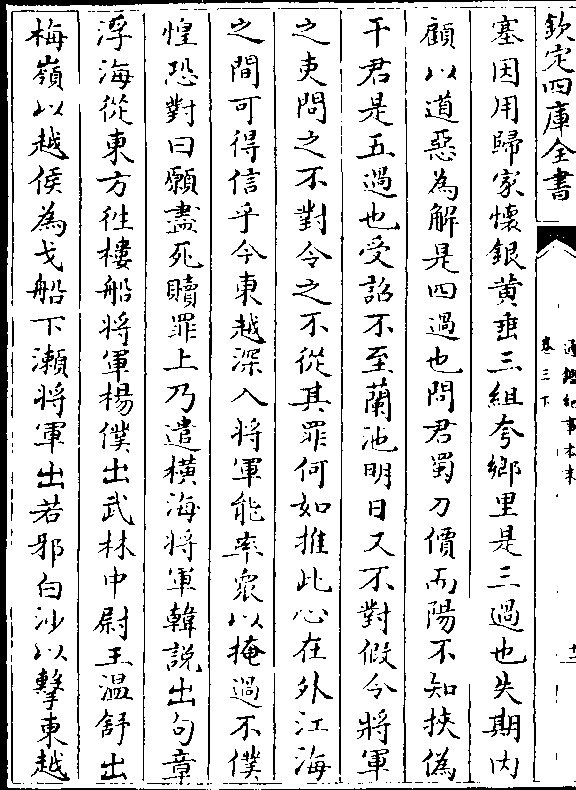 欽定四庫全書
通鑑紀事本末
卷三下
十二
塞因用歸家懷銀黄垂三組夸鄉里是三過也失期内
顧以道惡為解是四過也問君蜀刀價而陽不知挾偽
干君是五過也受詔不至蘭池明日又不對假令將軍
之吏問之不對令之不從其罪何如推此心在外江海
之間可得信乎今東越深入將軍能率衆以掩過不僕
惶恐對曰願盡死贖罪上乃遣横海將軍韓説出句章
浮海從東方徃樓船將軍楊僕出武林中尉王温舒出
梅嶺以越侯為戈船下瀨將軍出若邪白沙以擊東越